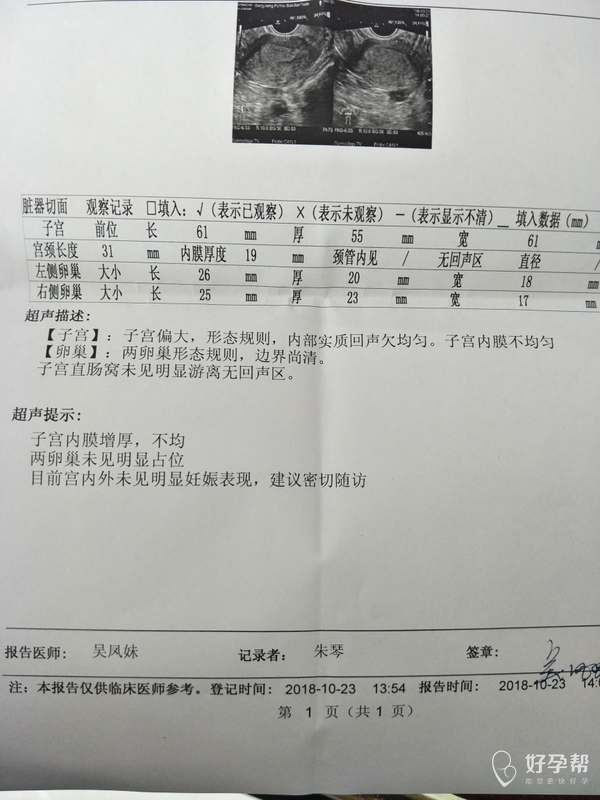 脏器切面 观察记录 □填入：√（表示已观察） ×（表示未观察） －（表示显示不清）＿ 填入数据（mm）
子宫 前位 长 61 mm 厚 55 mm 宽 61 m
宫颈长度 31 mm 内膜厚度 19 mm 颈管内见 / 无回声区 直径 /
左侧卵巢 大小 长 26 mm 厚 20 mm 宽 18 m
右侧卵巢 大小 长 25 mm 厚 23 mm 宽 17 mm
超声描述：
【子宫】：子宫偏大，形态规则，内部实质回声欠均匀。子宫内膜不均匀
【卵巢】：两卵巢形态规则，边界尚清。
子宫直肠窝未见明显游离无回声区。
超声提示：
子宫内膜增厚，不均
两卵巢未见明显占位
目前宫内外未见明显妊娠表现，建议密切随访
报告医师： 吴凤妹 记录者： 朱琴 签章：
注：本报告仅供临床医师参考。登记时间： 2018-10-23 13:54 报告时间： 2018-10-23
第 1 页（共 1 页）
好孕帮
助您更快好孕